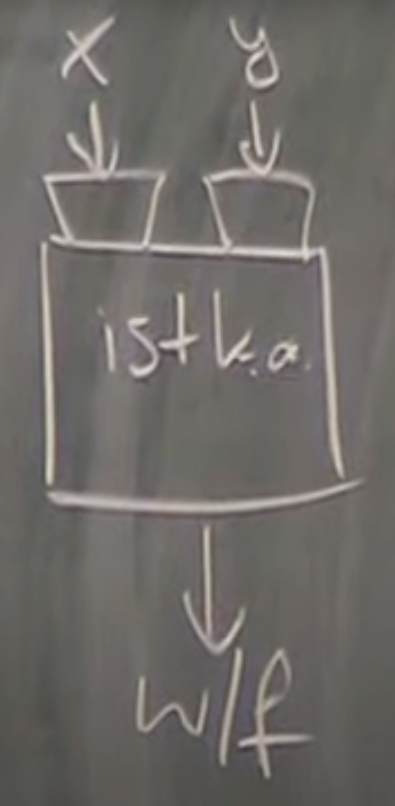 x y
ist k.a.
w/f